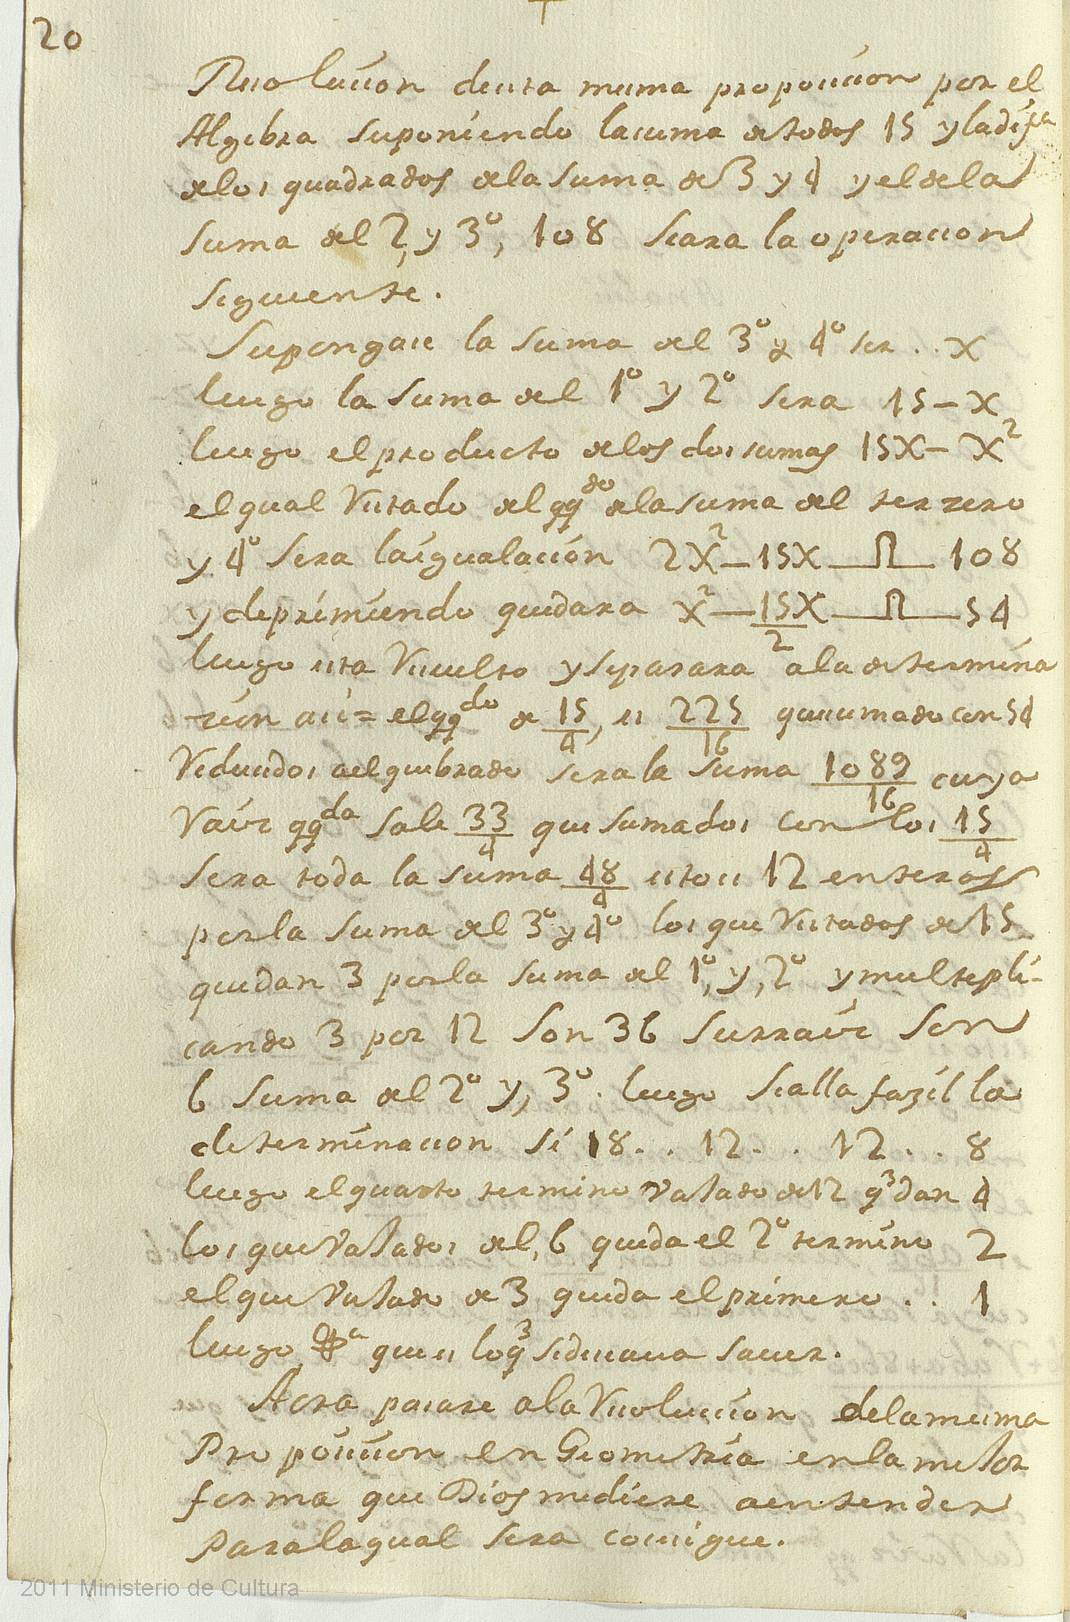 20
Resolucion desta mesma proposicion por el
Algebra suponiendo la suma de todos 15 y la difª
de los quadrados de la suma de 3 y 4 y el de la
suma del 2, y 3º, 108 seara la operacion
siguiente.
Supongase la suma del 3º y 4º ser . . x
luego la suma del 1º y 2º sera 15 - x
luego el producto de los dos sumas 15x - x²
el qual Restado del qqdo de la suma del terzero
y 4º sera la igualacion 2x² - 15x —Ո— 108
y deprimiendo quedara x² - 15x/2 —Ո— 54
luego esta Resuelto y se pasara a la determina
zion asi = el qqdo de 15/4, es 225/16 que sumado con 54
Reducidos a el quebrado sera la suma 1089/16 cuya
Raiz qqda sale 33/4 que sumados con los 15/4
sera toda la suma 48/4 esto es 12 enteros
por la suma del 3º y 4º los que Restados de 15
quedan 3 por la suma del 1º, y, 2º y multepli-
cando 3 por 12 son 36 su rraiz son
6 suma del 2º y, 3º. luego sealla fazil la
determinacion si 18. . 12. . 12. . 8
luego el quarto termino Rastado de 12 q³dan 4
los que Rastados del, 6 queda el 2º termino 2
el que Rastado de 3 queda el primero . . 1
luego &ª que es lo q³ se deseava saver.
Aora pasare a la Resolucion de la mesma
Proposicion en Geometria en la mejor
forma que Dios me diere a entender
Para la qual sera como sigue.
2011 Ministerio de Cultura